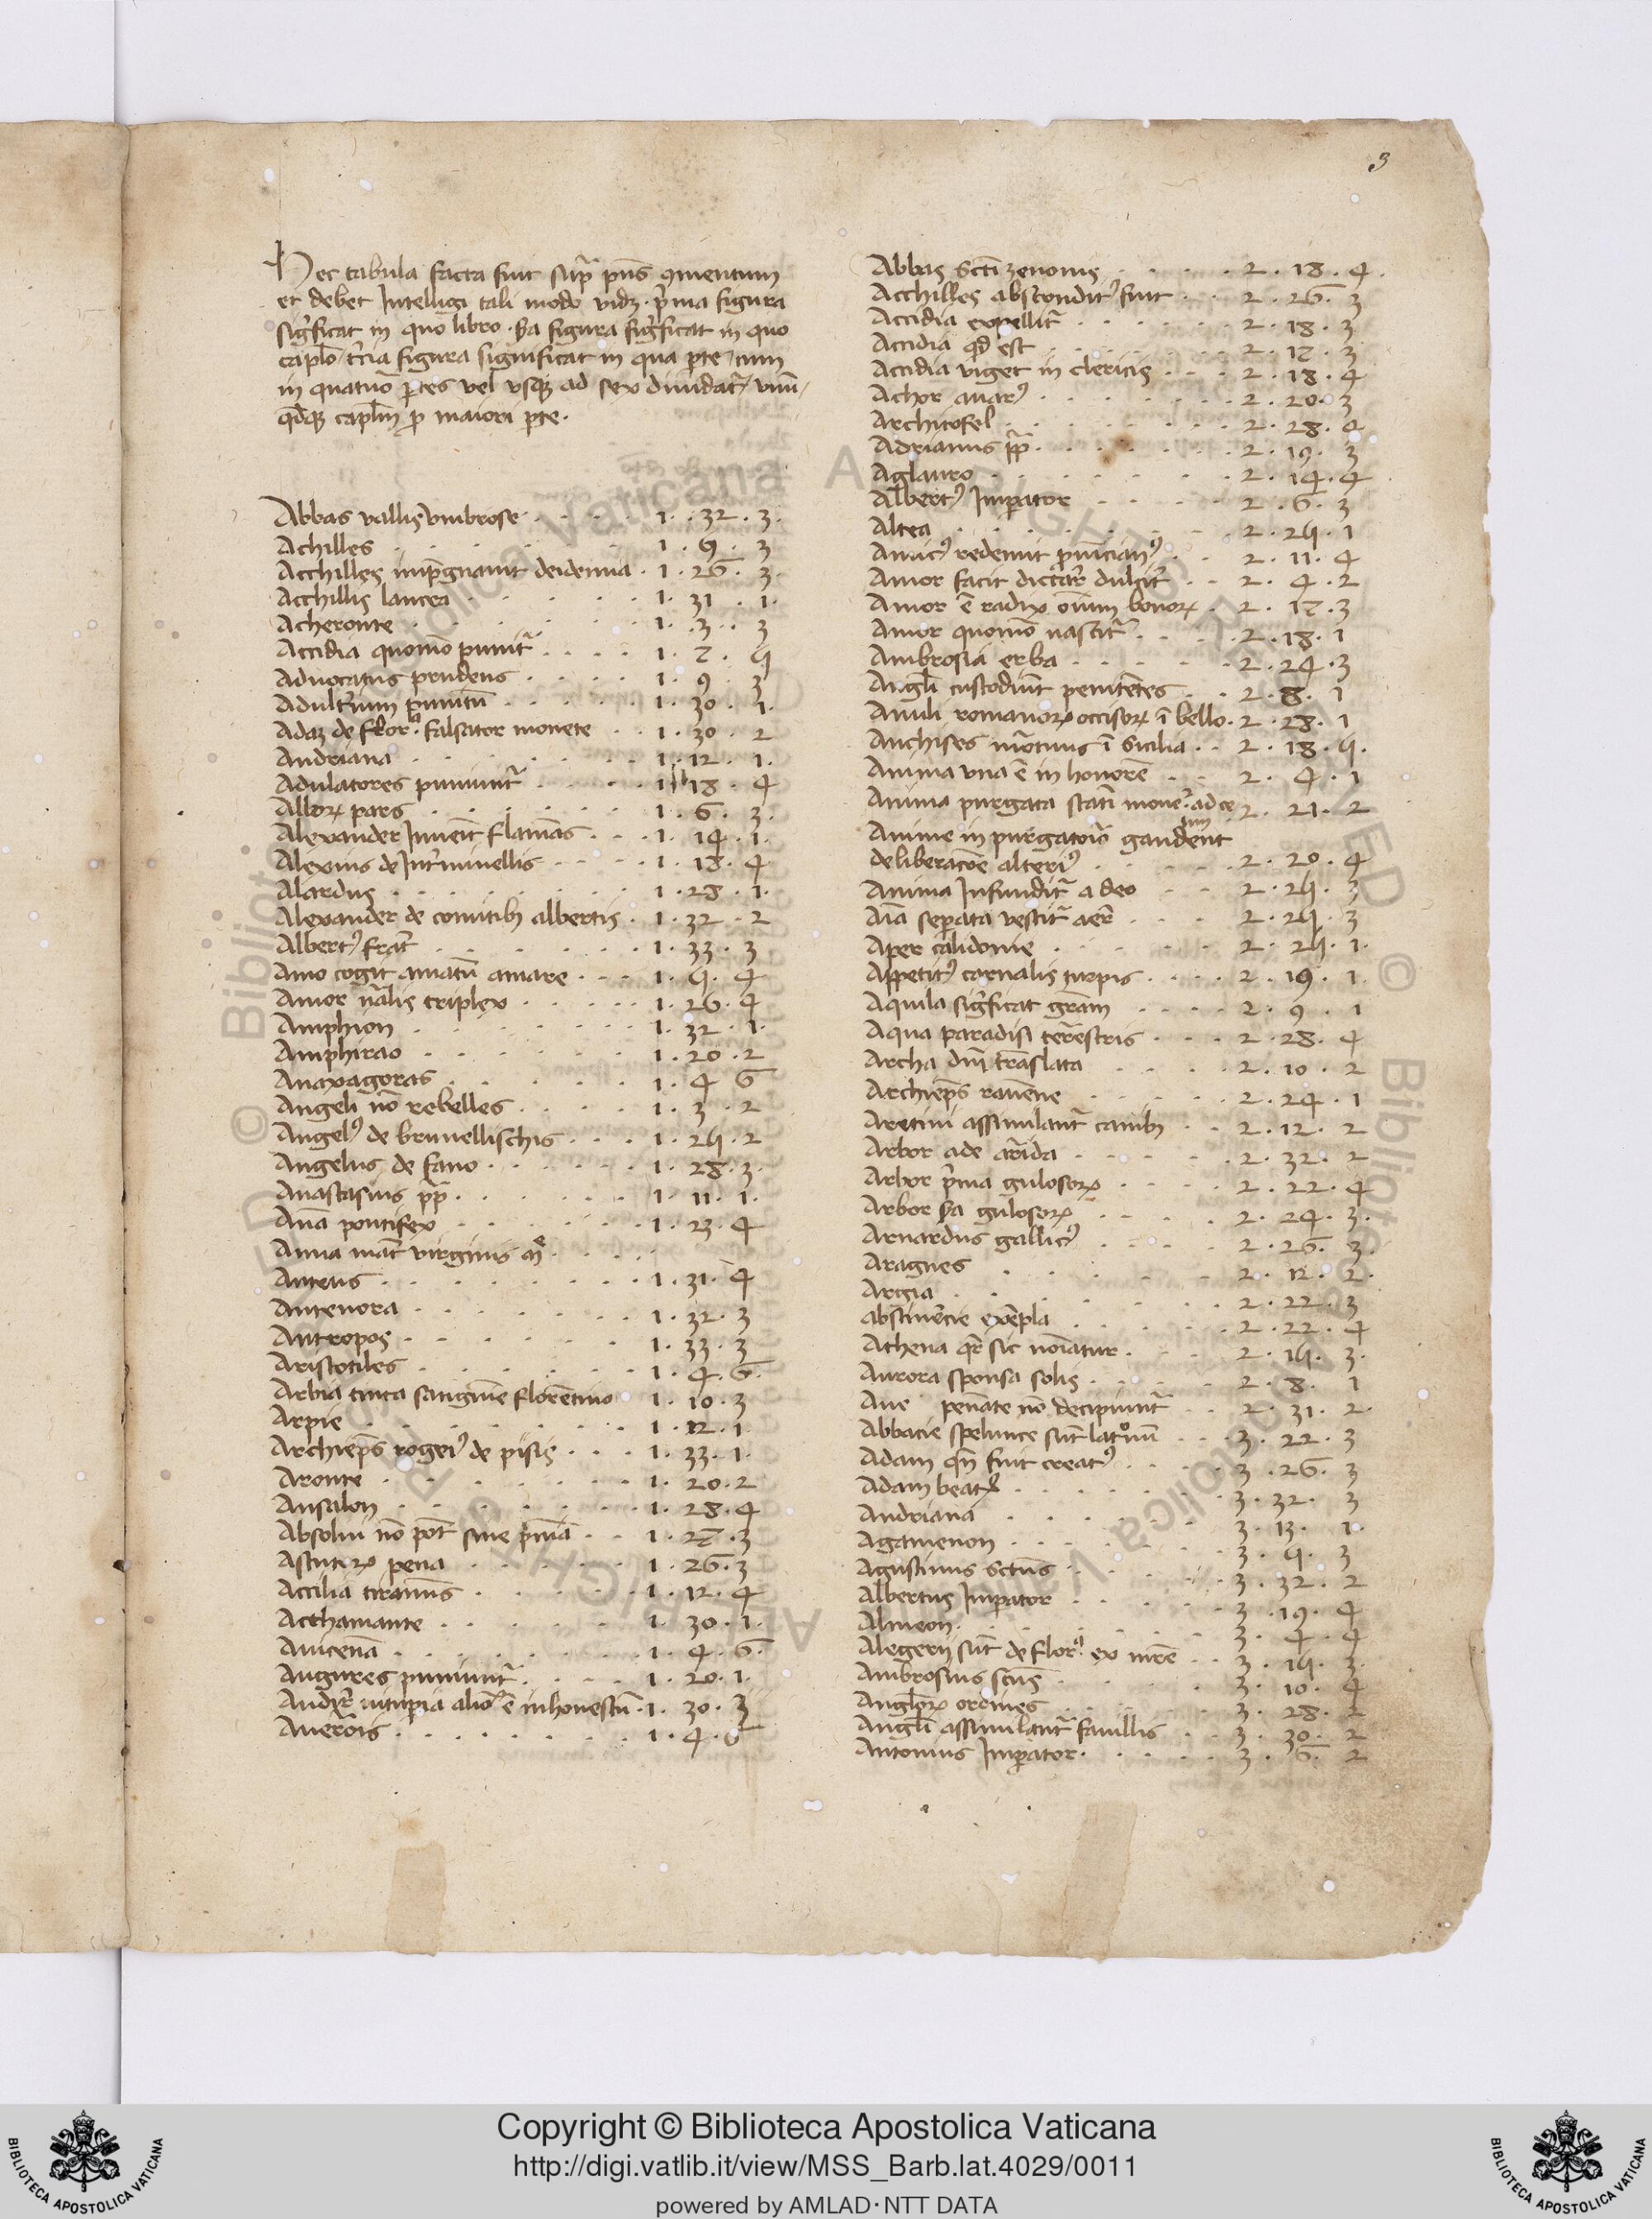 3
Hec tabula facta fuit sup̄ pn̄s 9mentum
et debet Intelligi tali modo vidꝫ · p̄ma figura
sigͥficat in quo libro · 2a figura sigͥficat in quo
caplō tr̄cia figura significat in qua ꝑte cum
in quatuō ꝑtes vel vsqꝫ ad sex diuidat᷑ vnū-
qdqꝫ caplm̄ ꝓ maiori ꝑte.
Abbas vallis vmbrose . . . . 1 . 32 . 3.
Achilles . . . . . . 1 . 9 . 3
Acchilles imp̄gnauit deidemia . 1 . 26 . 3.
Acchillis lancea . . . . . 1 . 31 . 1.
Acheronte . . . . . . 1 . 3 . 3
Accidia quomō punit᷑ . . . . 1 . 7 . 5
Aduocatus prudens . . . . 1 . 9 . 3
Adult̄rium punitū . . . . . 1 . 30 . 1.
Adaꝫ de flor.ͣ falsator monete . . 1 . 30 . 2
Andriana . . . . . . . 1 . 12 . 1.
Adulatores puniunt᷑ . . . . 1 18 . 4
Alloꝝ pars . . . . . . 1 . 6 . 3.
Alexander Inuēit flamas . . . 1 . 14 . 1.
Alexius de Int̄minellis . . . 1 . 18 . 4.
Alardus . . . . . . . 1 . 28 . 1.
Alexander de comitibꝫ albertis . 1 . 32 . 2
Albertꝰ frat̄ . . . . . . 1 . 33 . 3
Amo cogit amatū amare . . . 1 . 5 . 4
Amor nālis triplex . . . . . 1 . 26 . 4
Amphion . . . . . . . 1 . 32 . 1.
Amphirao . . . . . . 1 . 20 . 2
Anaxagoras . . . . . . 1 . 4 6
Angeli nō rebelles . . . . . 1 . 3 . 2
Angelꝰ de brunellischis . . . 1 . 25 . 2
Angelus de fano . . . . . . 1 . 28 . 3.
Anastasius pp̄ . . . . . . 1 . 11 . 1.
Anā pontifex . . . . . . 1 . 23 . 4
Anna mat̄ virginis mͤ . . . .
Anteus . . . . . . . . 1 . 31 . 4
Antenora . . . . . . . 1 . 32 . 3
Antropos . . . . . . . 1 . 33 . 3
Aristotiles . . . . . . 1 . 4 . 6.
Arbia tincta sanguine florētino 1 . 10 . 3
Arpie . . . . . . . . 1 . 12 . 1
Archiep̄s rogeiꝰ de pisis . . . 1 . 33 . 1.
Aronte . . . . . . . 1 . 20 . 2
Ansalon . . . . . . . 1 . 28 . 4
Absolui nō pōt sine pn̄ia . . 1 . 27 . 3
Astutoꝝ pena . . . . . 1 . 26 . 3
Accilia tiramus . . . . . 1 . 12 . 4
Acthamante . . . . . . 1 . 30 . 1.
Auicenā . . . . . . . 1 . 4 . 6.
Augures puniunt᷑ . . . . 1 . 20 . 1.
Audir̄ uituꝑia alioꝝ ē inhonestū . 1 . 30 . 3
Auerois . . . . . . . 1 . 4 . 6
Abbas Scti zenonis . . . . . 2 . 18 . 4.
Acchilles abscondit᷑ fuit . . 2 . 26 . 3
Accidia expellit᷑ . . . . . . 2 . 18 . 3
Accidia qd̄ est . . . . . . 2 . 17 . 3
Accidia viget in clericis . . . 2 . 18 . 4
Achor auarꝰ . . . . . . . 2 . 20 . 3
Architofel . . . . . . . 2 . 28 . 4
Adrianus pp̄ . . . . . . 2 . 19 . 3
Aglauro . . . . . . . 2 . 14 . 4
Albertꝰ Imꝑator . . . . 2 . 6 . 3
Altea . . . . . . . 2 . 25 . 1
Amicꝰ redemit ꝓuincianꝰ . . 2 . 11 . 4
Amor facit dictar̄ dulcit̄ . . 2 . 4 . 2
Amor ē radix oīum bonoꝝ . 2 . 17 . 3
Amor quomō nascit᷑ . . . . 2 . 18 . 1
Ambrosia erba . . . . . . 2 . 24 . 3
Angli custodiūt penitētes . . 2 . 8 . 1
Anuli romanoꝝ occisoꝝ ī bello . 2 . 28 . 1
Anchises mortuus ī Sicilia . . 2 . 18 . 5.
Anima vna ē in honorē . . 2 . 4 . 1
Anima purgata statī moueͬ. ad ce 2 . 21 . 2
lum
Anime in purgatorio gaudent
deliberacōe alteriꝰ . . . . . 2 . 20 . 4
Anima Infundit᷑ a deo . . . 2 . 25 . 3
Aīa seꝑata vestit᷑ aer̄ . . . . 2 . 25 . 3
Aper calidonie . . . . . . 2 . 25 . 1.
Appetitꝰ carnalis turpis . . . . 2 . 19 . 1.
Aquila sigͥficat gram̄ . . . . 2 . 9 . 1
Aqua paradisi terrestris . . . 2 . 28 . 4
Archa dn̄i trāslata . . . . 2 . 10 . 2
Archiep̄s rauēne . . . . . 2 . 24 . 1
Aretini assimilant᷑ canibꝫ . . 2 . 12 . 2
Arbor ade arida . . . . . 2 . 32 . 2
Arbor p̄ma gulosoꝝ . . . . 2 . 22 . 4
Arbor 2a gulosoꝝ . . . . 2 . 24 . 3.
Arnardus gallicꝰ . . . . 2 . 26 . 3.
Aragnes . . . . . . 2 . 12 . 2.
Argia . . . . . . . . 2 . 22 . 3
abstinēcie exēpla . . . . . 2 . 22 . 4
Athena qr̄ sic noīatur . . . 2 . 15 . 3.
Aurora sponsa solis . . . . 2 . 8 . 1
Aue penate nō decipiunt᷑ . . 2 . 31 . 2.
Abbacie spelunce sūt latͦnū . . . 3 . 22 . 3
Adam qn̄ fuit creatꝰ . . . . 3 . 26 . 3
Adam beatꝰ . . . . . . . 3 . 32 . 3
Andriana . . . . . . . 3 . 13 . 1.
Agamenon . . . . . . . 3 . 5 . 3
Agustinus Sctus . . . . . 3 . 32 . 2
Albertus Imꝑator . . . . . 3 . 19 . 4
Almeon . . . . . . . . 3 . 4 . 4
Alegerij sūt de flor.ͣ ex mr̄e . . 3 . 15 . 3.
Ambrosius sctus . . . . . 3 . 10 . 4
Angloꝝ ordines . . . . . . 3 . 28 . 2
Angli assimilant᷑ fauillis . . 3 . 30 . 2
Antonius Imꝑator . . . . . 3 . 6 . 2
Copyright © Biblioteca Apostolica Vaticana
http://digi.vatlib.it/view/MSS_Barb.lat.4029/0011
powered by AMLAD·NTT DATA
BIBLIOTECA APOSTOLICA VATICANA
BIBLIOTECA APOSTOLICA VATICANA